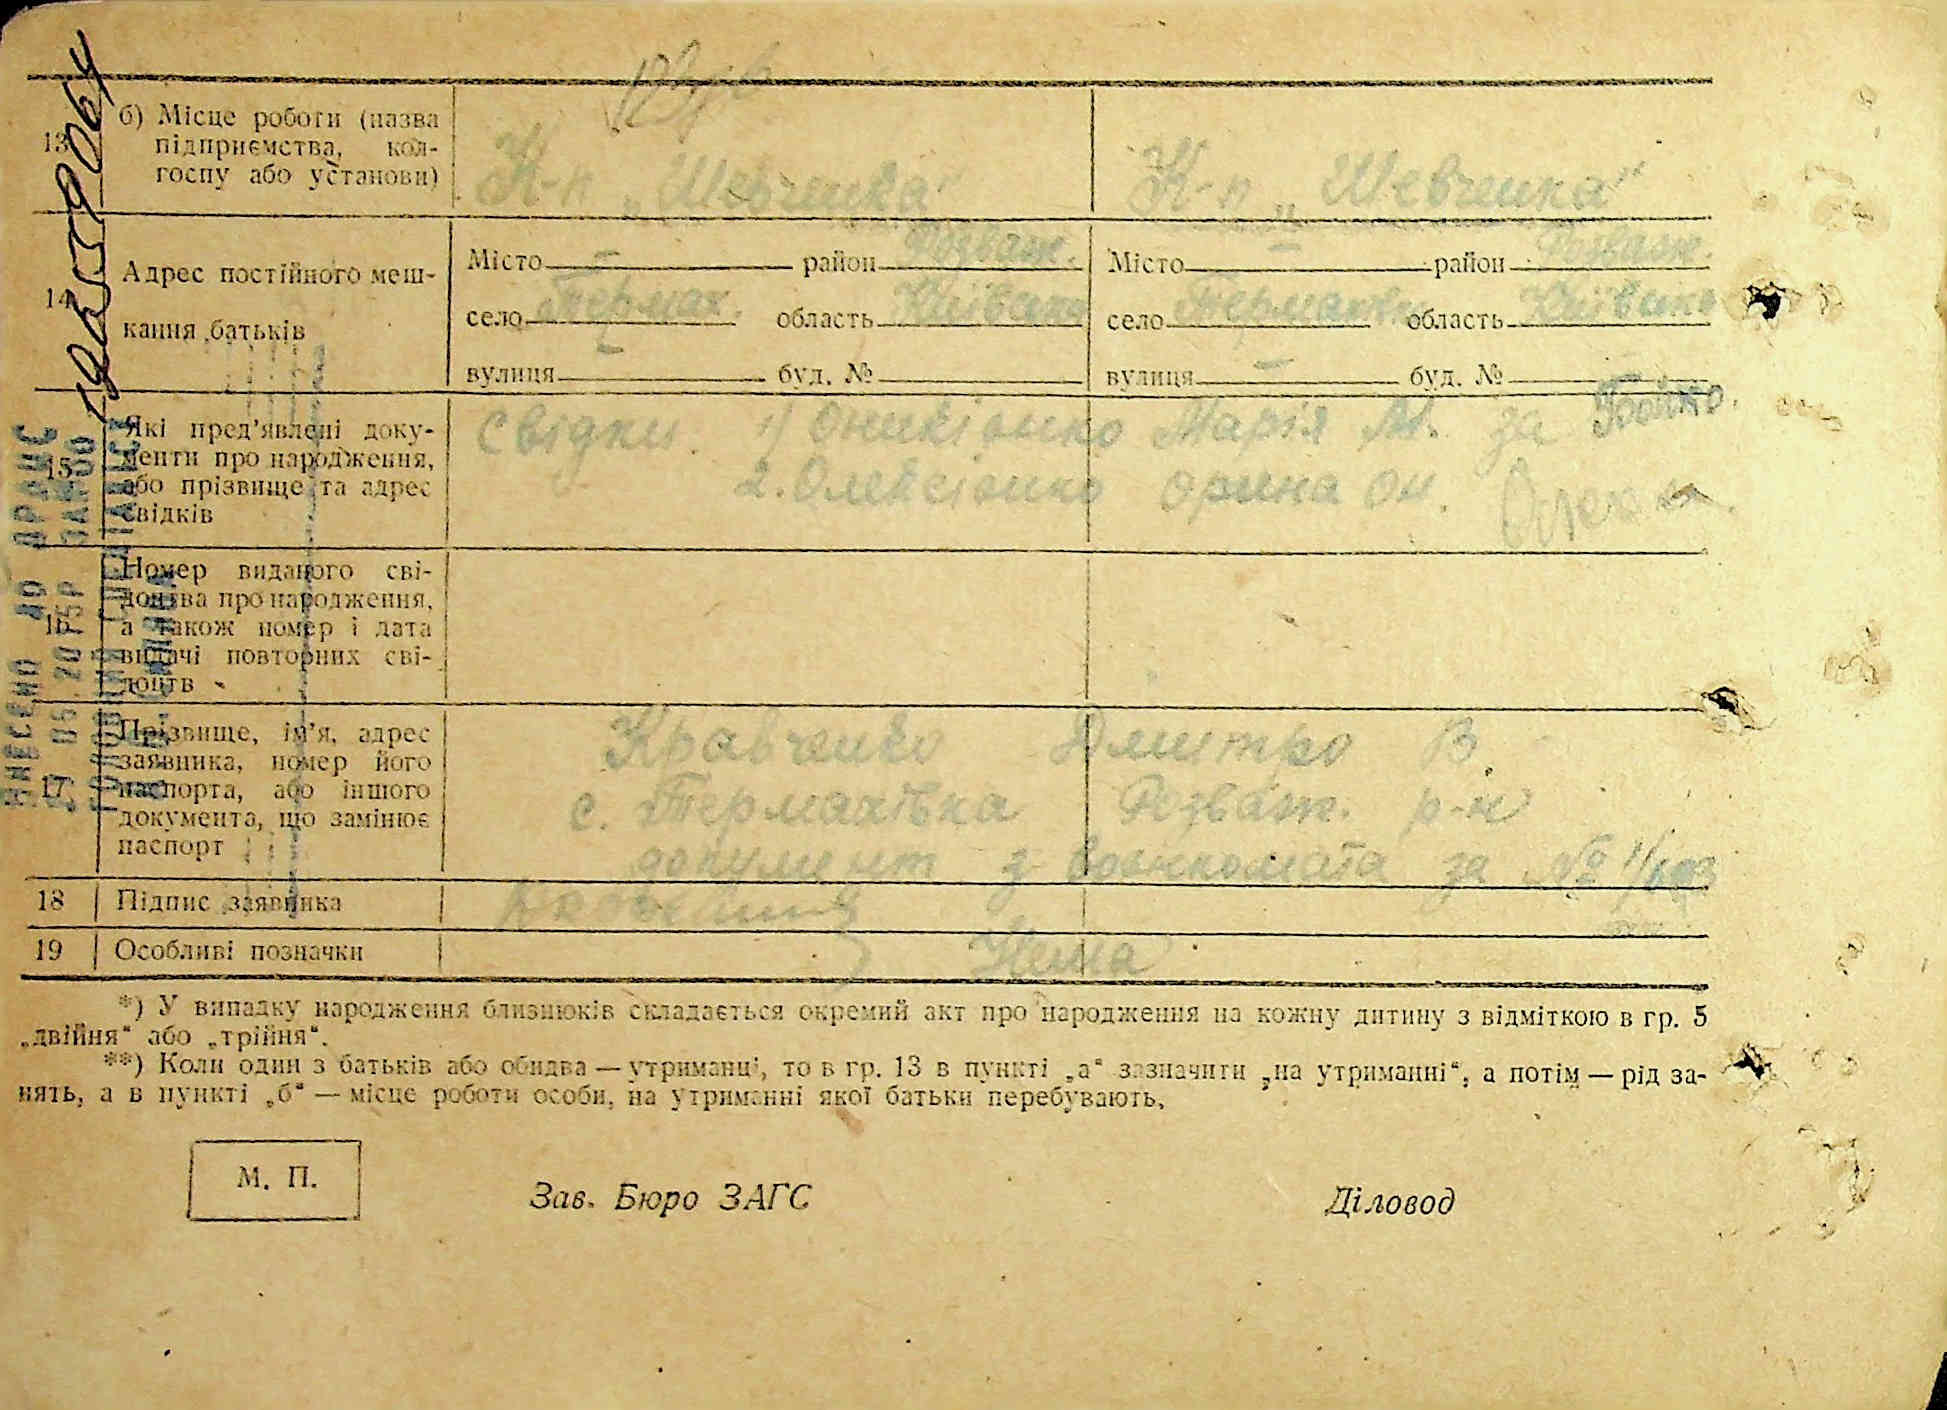 13 б) Місце роботи (назва підприємства, колгоспу або установи)
К-п „Шевченка" К-п „Шевченка"
14 Адрес постійного мешкання батьків
Місто — район Розваж. Місто — район Розваж.
село Термах. область Київська село Термахівка область Київська
вулиця — буд. № вулиця — буд. №
15 Які пред'явлені документи про народження, або прізвище та адрес свідків
свідки 1) Оникієнко Марія М. за Бойко.
2. Олексієнко Орина Он.
16 Номер виданого свідоцтва про народження, а також номер і дата видачі повторних свідоцтв
17 Прізвище, ім'я, адрес заявника, номер його паспорта, або іншого документа, що замінює паспорт
Кравченко Дмитро В.
с. Термахівка Розваж. р-н
документ з воєнкомата за №
18 Підпис заявника
19 Особливі позначки Нема
*) У випадку народження близнюків складається окремий акт про народження на кожну дитину з відміткою в гр. 5
„двійня" або „трійня".
**) Коли один з батьків або обидва — утриманці, то в гр. 13 в пункті „а" зазначити „на утриманні", а потім — рід за-
нять, а в пункті „б" — місце роботи особи, на утриманні якої батьки перебувають,
М. П. Зав. Бюро ЗАГС Діловод
ВНЕСЕНО ДО ДРАЦС